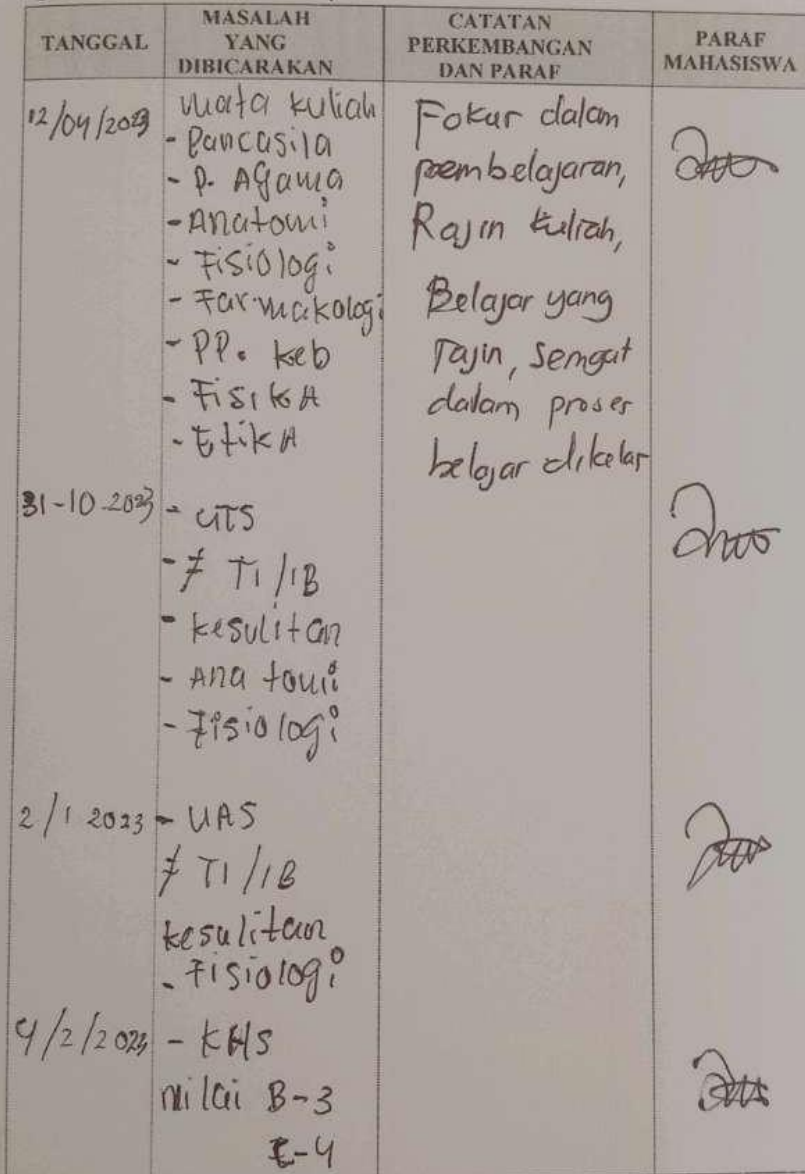 TANGGAL
MASALAH
YANG
DIBICARAKAN
CATATAN
PERKEMBANGAN
DAN PARAF
PARAF
MAHASISWA
12/04/2023
mata kuliah
- Pancasila
- P. Agama
- Anatomi
- Fisiologi
- Farmakologi
- PP. keb
- FisikA
- EtikA
Fokur dalam
pembelajaran,
Rajin kuliah,
Belajar yang
rajin, semgat
dalam proser
belajar dikelar
31-10-2023
- UTS
- ≠ T1/1B
- kesulitan
- Anatomi
- Fisiologi
2/1 2023
- UAS
≠ T1/1B
kesulitan
- Fisiologi
4/2/2024
- KHS
nilai B-3